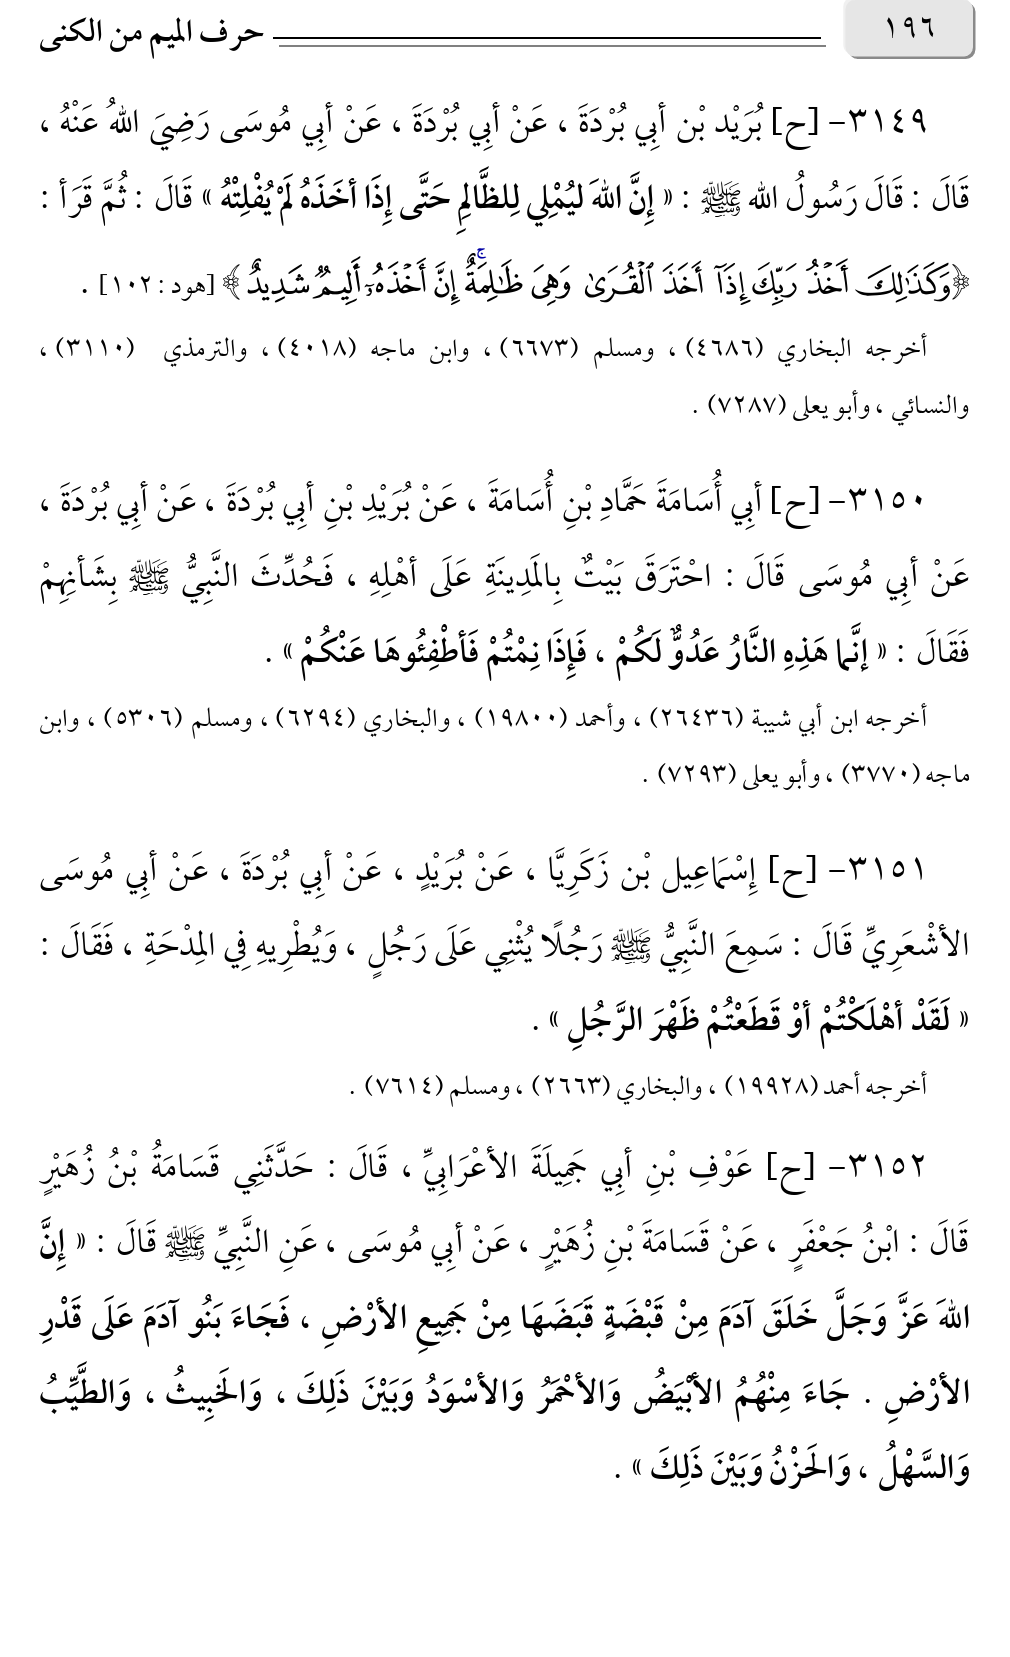 ١٩٦
حرف الميم من الكنى
٣١٤٩- [ح] بُرَيْد بْن أبي بُرْدَةَ ، عَنْ أبي بُرْدَةَ ، عَنْ أبِي مُوسَى رَضِيَ اللهُ عَنْهُ ،
قَالَ : قَالَ رَسُولُ الله ﷺ : « إِنَّ اللهَ ليُمْلِي لِلظَّالِمِ حَتَّى إِذَا أخَذَهُ لَمْ يُفْلِتْهُ » قَالَ : ثُمَّ قَرَأ :
﴿وَكَذَٰلِكَ أَخْذُ رَبِّكَ إِذَآ أَخَذَ ٱلْقُرَىٰ وَهِىَ ظَـٰلِمَةٌ ۚ إِنَّ أَخْذَهُۥٓ أَلِيمٌ شَدِيدٌ﴾ [هود : ١٠٢] .
أخرجه البخاري (٤٦٨٦) ، ومسلم (٦٦٧٣) ، وابن ماجه (٤٠١٨) ، والترمذي (٣١١٠) ،
والنسائي ، وأبو يعلى (٧٢٨٧) .
٣١٥٠- [ح] أبِي أُسَامَةَ حَمَّادِ بْنِ أُسَامَةَ ، عَنْ بُرَيْدِ بْنِ أبِي بُرْدَةَ ، عَنْ أبِي بُرْدَةَ ،
عَنْ أبِي مُوسَى قَالَ : احْتَرَقَ بَيْتٌ بِالمَدِينَةِ عَلَى أهْلِهِ ، فَحُدِّثَ النَّبِيُّ ﷺ بِشَأنِهِمْ
فَقَالَ : « إنَّما هَذِهِ النَّارُ عَدُوٌّ لَكُمْ ، فَإِذَا نِمْتُمْ فَأطْفِئُوهَا عَنْكُمْ » .
أخرجه ابن أبي شيبة (٢٦٤٣٦) ، وأحمد (١٩٨٠٠) ، والبخاري (٦٢٩٤) ، ومسلم (٥٣٠٦) ، وابن
ماجه (٣٧٧٠) ، وأبو يعلى (٧٢٩٣) .
٣١٥١- [ح] إِسْمَاعِيل بْن زَكَرِيَّا ، عَنْ بُرَيْدٍ ، عَنْ أبِي بُرْدَةَ ، عَنْ أبِي مُوسَى
الأشْعَرِيِّ قَالَ : سَمِعَ النَّبِيُّ ﷺ رَجُلًا يُثْنِي عَلَى رَجُلٍ ، وَيُطْرِيهِ فِي المِدْحَةِ ، فَقَالَ :
« لَقَدْ أهْلَكْتُمْ أوْ قَطَعْتُمْ ظَهْرَ الرَّجُلِ » .
أخرجه أحمد (١٩٩٢٨) ، والبخاري (٢٦٦٣) ، ومسلم (٧٦١٤) .
٣١٥٢- [ح] عَوْفِ بْنِ أبِي جَمِيلَةَ الأعْرَابِيِّ ، قَالَ : حَدَّثَنِي قَسَامَةُ بْنُ زُهَيْرٍ
قَالَ : ابْنُ جَعْفَرٍ ، عَنْ قَسَامَةَ بْنِ زُهَيْرٍ ، عَنْ أبِي مُوسَى ، عَنِ النَّبِيِّ ﷺ قَالَ : « إِنَّ
اللهَ عَزَّ وَجَلَّ خَلَقَ آدَمَ مِنْ قَبْضَةٍ قَبَضَهَا مِنْ جَمِيعِ الأرْضِ ، فَجَاءَ بَنُو آدَمَ عَلَى قَدْرِ
الأرْضِ . جَاءَ مِنْهُمُ الأبْيَضُ وَالأحْمَرُ وَالأسْوَدُ وَبَيْنَ ذَلِكَ ، وَالخَبِيثُ ، وَالطَّيِّبُ
وَالسَّهْلُ ، وَالحَزْنُ وَبَيْنَ ذَلِكَ » .